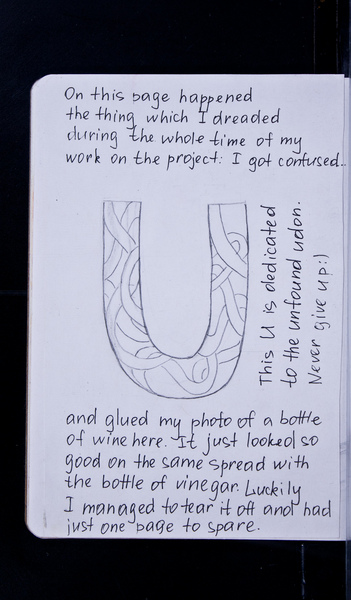 On this page happened
the thing which I dreaded
during the whole time of my
work on the project: I got confused..
U
This U is dedicated
to the unfound udon.
Never give up:)
and glued my photo of a bottle
of wine here. It just looked so
good on the same spread with
the bottle of vinegar. Luckily
I managed to tear it off and had
just one page to spare.